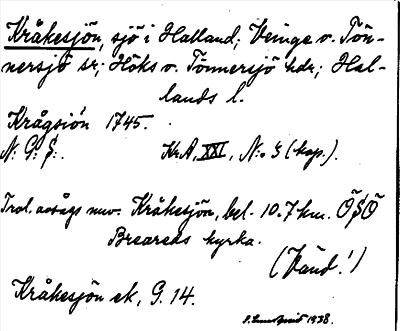 Kråkesjön, sjö i Halland; Veinge o. Tön-
nersjö sr; Höks o. Tönnersjö hdr; Hal-
lands l.
Krågsiön 1745.
N: G: S:. Kr A, XXI, N:o 3 (kop.).
Trol. avsågs nuv. Kråkesjön, bel. 10.7 km. ÖSÖ
Breareds kyrka.
(Vänd!)
Kråkesjön ek, G. 14.
1938.